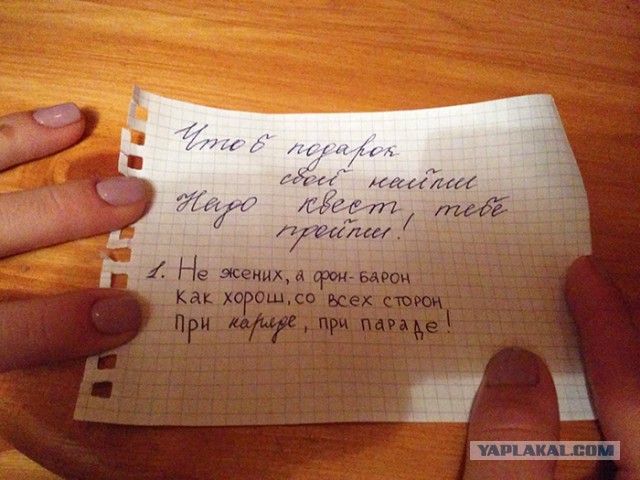 Чтоб подарок
свой найти
Надо квест, тебе
пройти!
1. Не жених, а фон-барон
Как хорош, со всех сторон
При наряде, при параде!
YAPLAKAL.COM